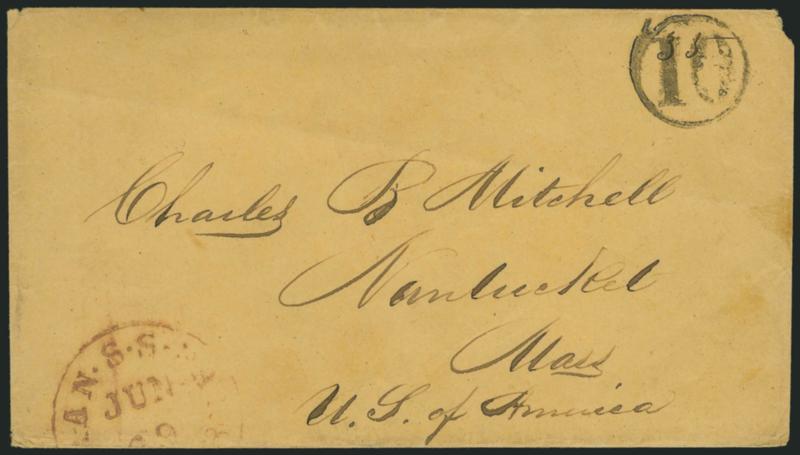 10
55
Charles B Mitchell
Nantucket
Mass
U. S. of America
AN. S. S.
JUN
69